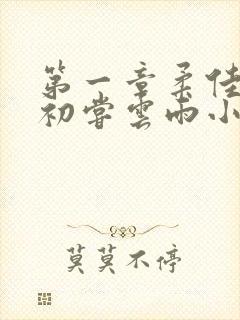 第一章柔佳
初尝云雨小
莫莫不停